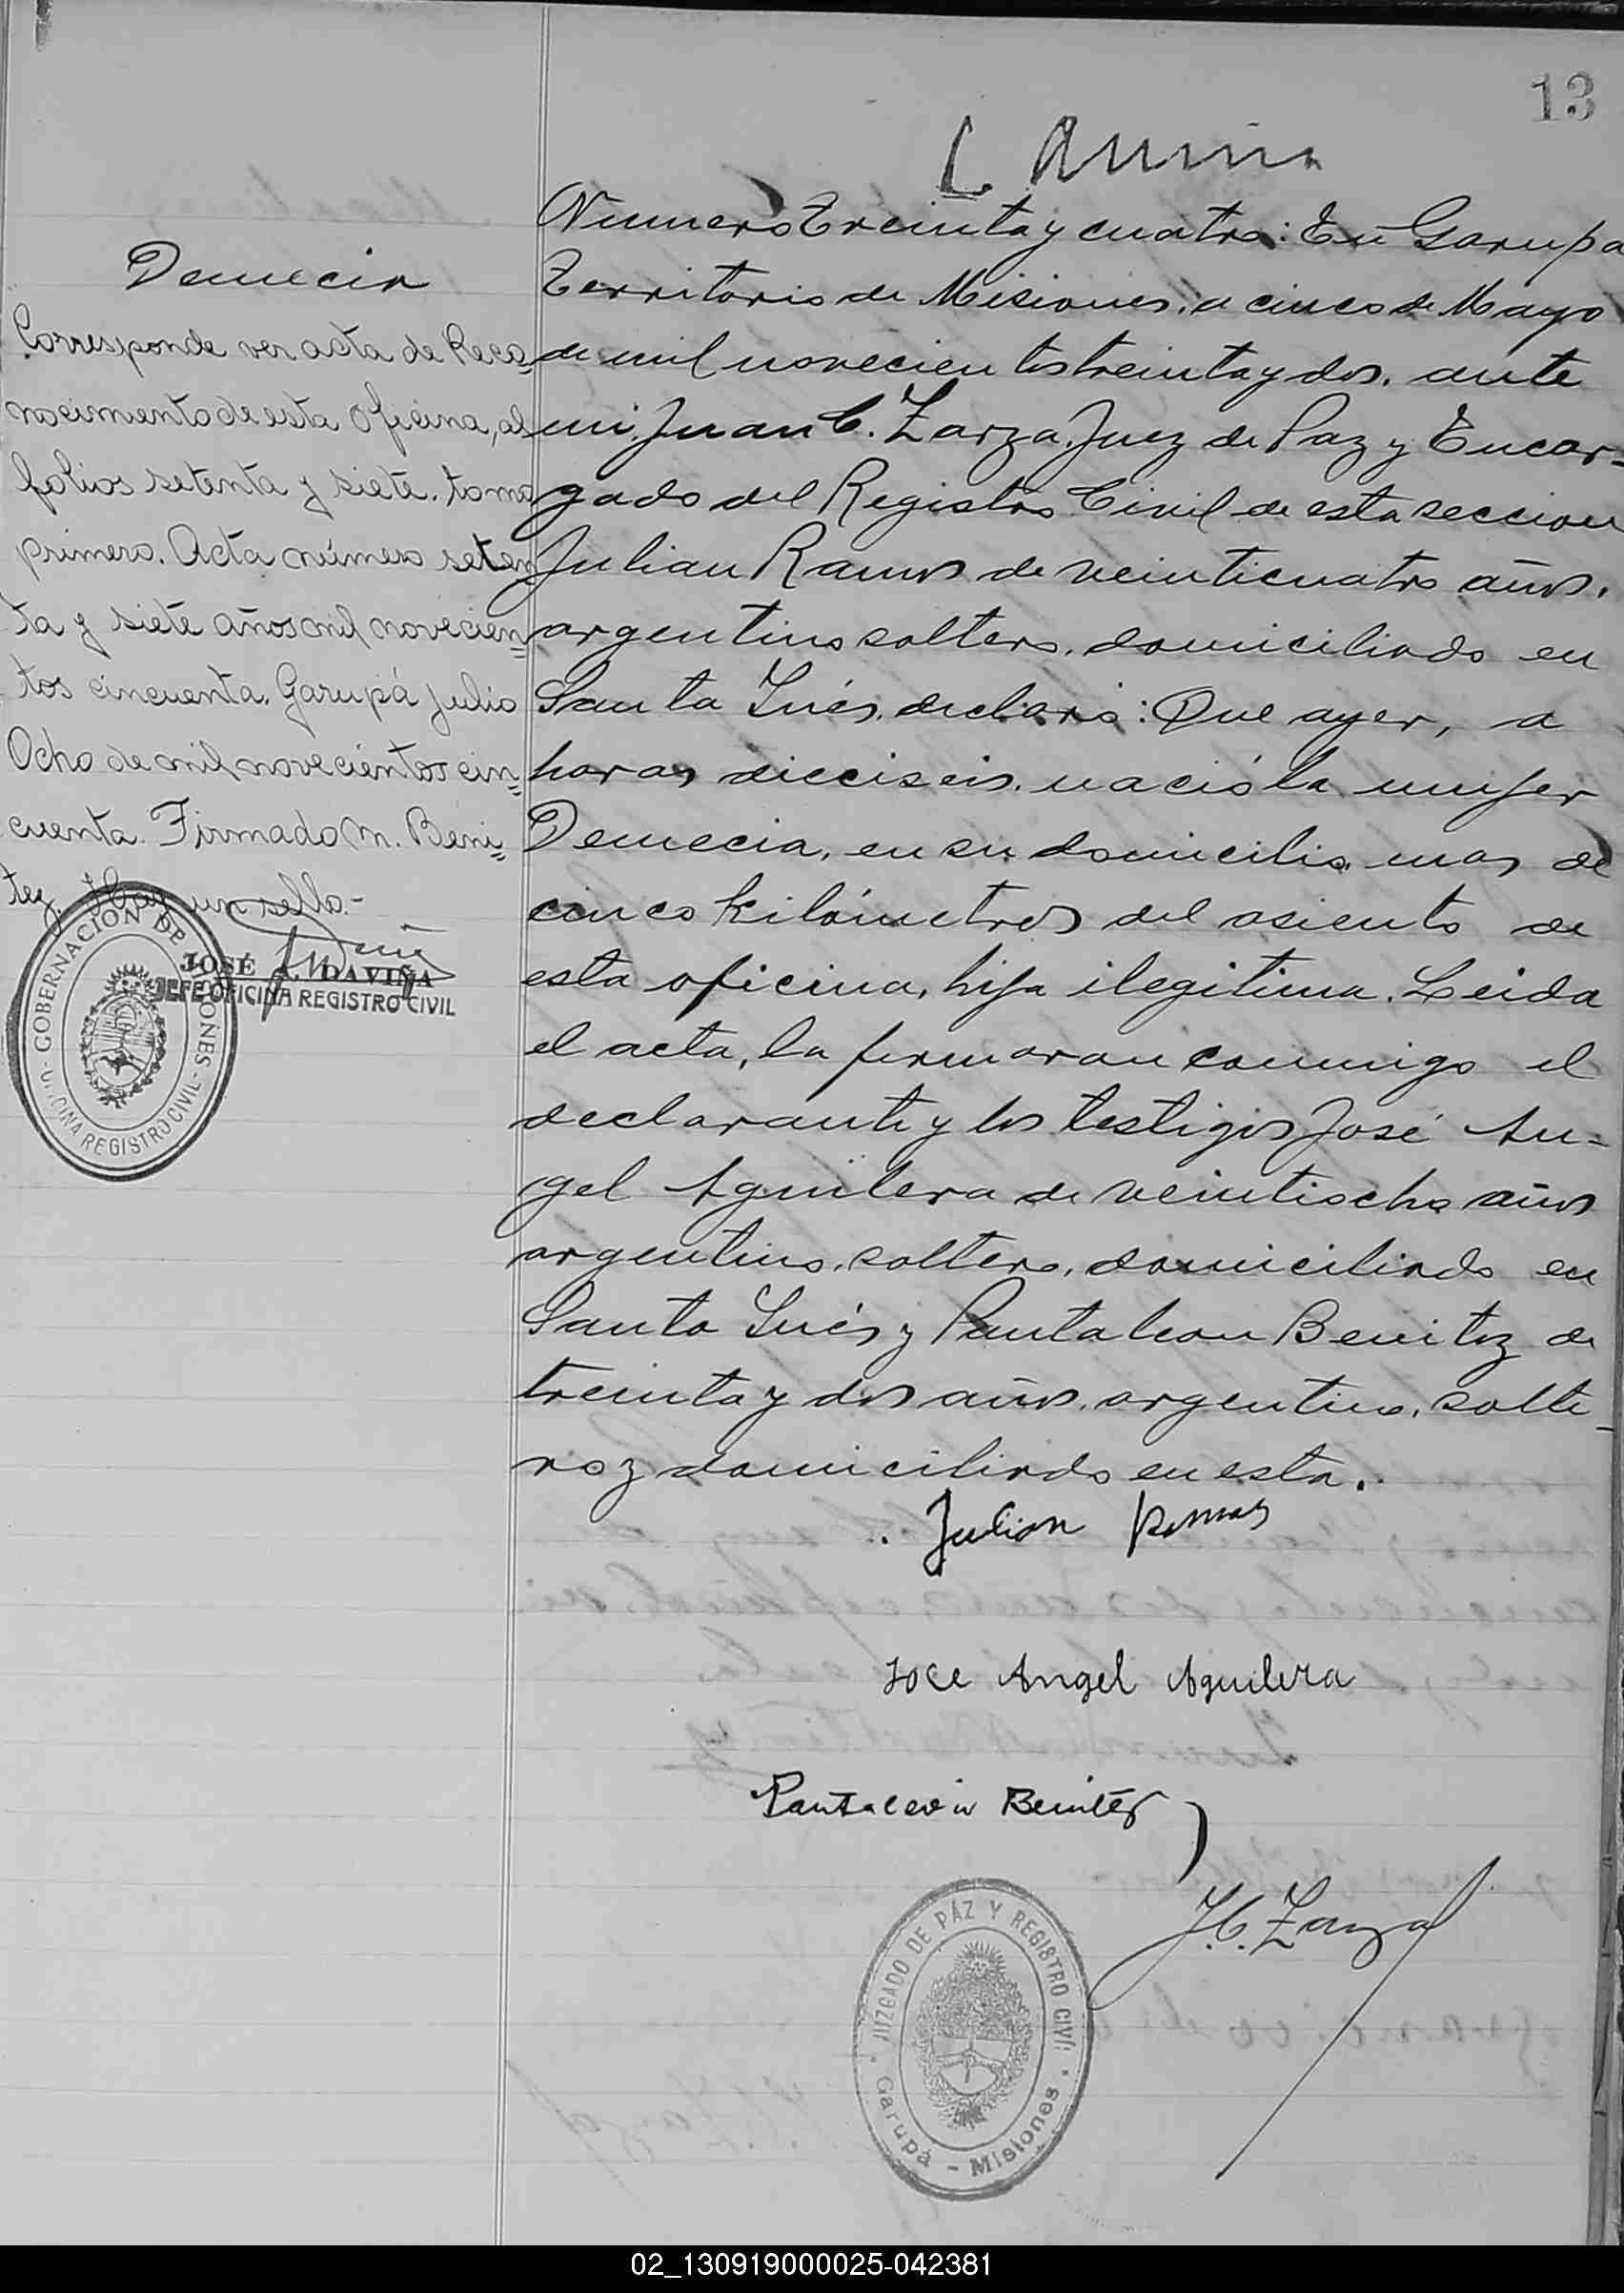 13
Numero treinta y cuatro: En Garupa
Territorio de Misiones, a cinco de Mayo
de mil novecientos treinta y dos, ante
mi, Juan C. Zarza, Juez de Paz y Encar-
gado del Registro Civil de esta seccion
Julian Ramos de veinticuatro años,
argentino soltero, domiciliado en
Santa Inés, declaró: Que ayer, a
horas dieciseis, nació la mujer
Demecia, en su domicilio mas de
cinco kilómetros del asiento de
esta oficina, hija ilegitima. Leida
el acta, la firmaran conmigo el
declarante y los testigos José An-
gel Aguilera de veintiocho años
argentino, soltero, domiciliado en
Santa Inés y Pantaleon Benitez de
treinta y dos años, argentino, solte-
ro y domiciliado en esta.
Julian Ramos
Jose Angel Aguilera
Pantaleon Benites
J.C. Zarza
JUZGADO DE PAZ Y REGISTRO CIVIL
Garupá - Misiones
Demecia
Corresponde ver acta de Reco=
nocimiento de esta Oficina, al
folios setenta y siete. tomo
primero. Acta número seten
ta y siete años mil novecien=
tos cincuenta. Garupá julio
Ocho de mil novecientos cin=
cuenta. Firmado M. Beni=
tez. Hay un sello.-
JOSÉ A. DAVIÑA
JEFE OFICINA REGISTRO CIVIL
GOBERNACION DE MISIONES
OFICINA REGISTRO CIVIL
02_130919000025-042381